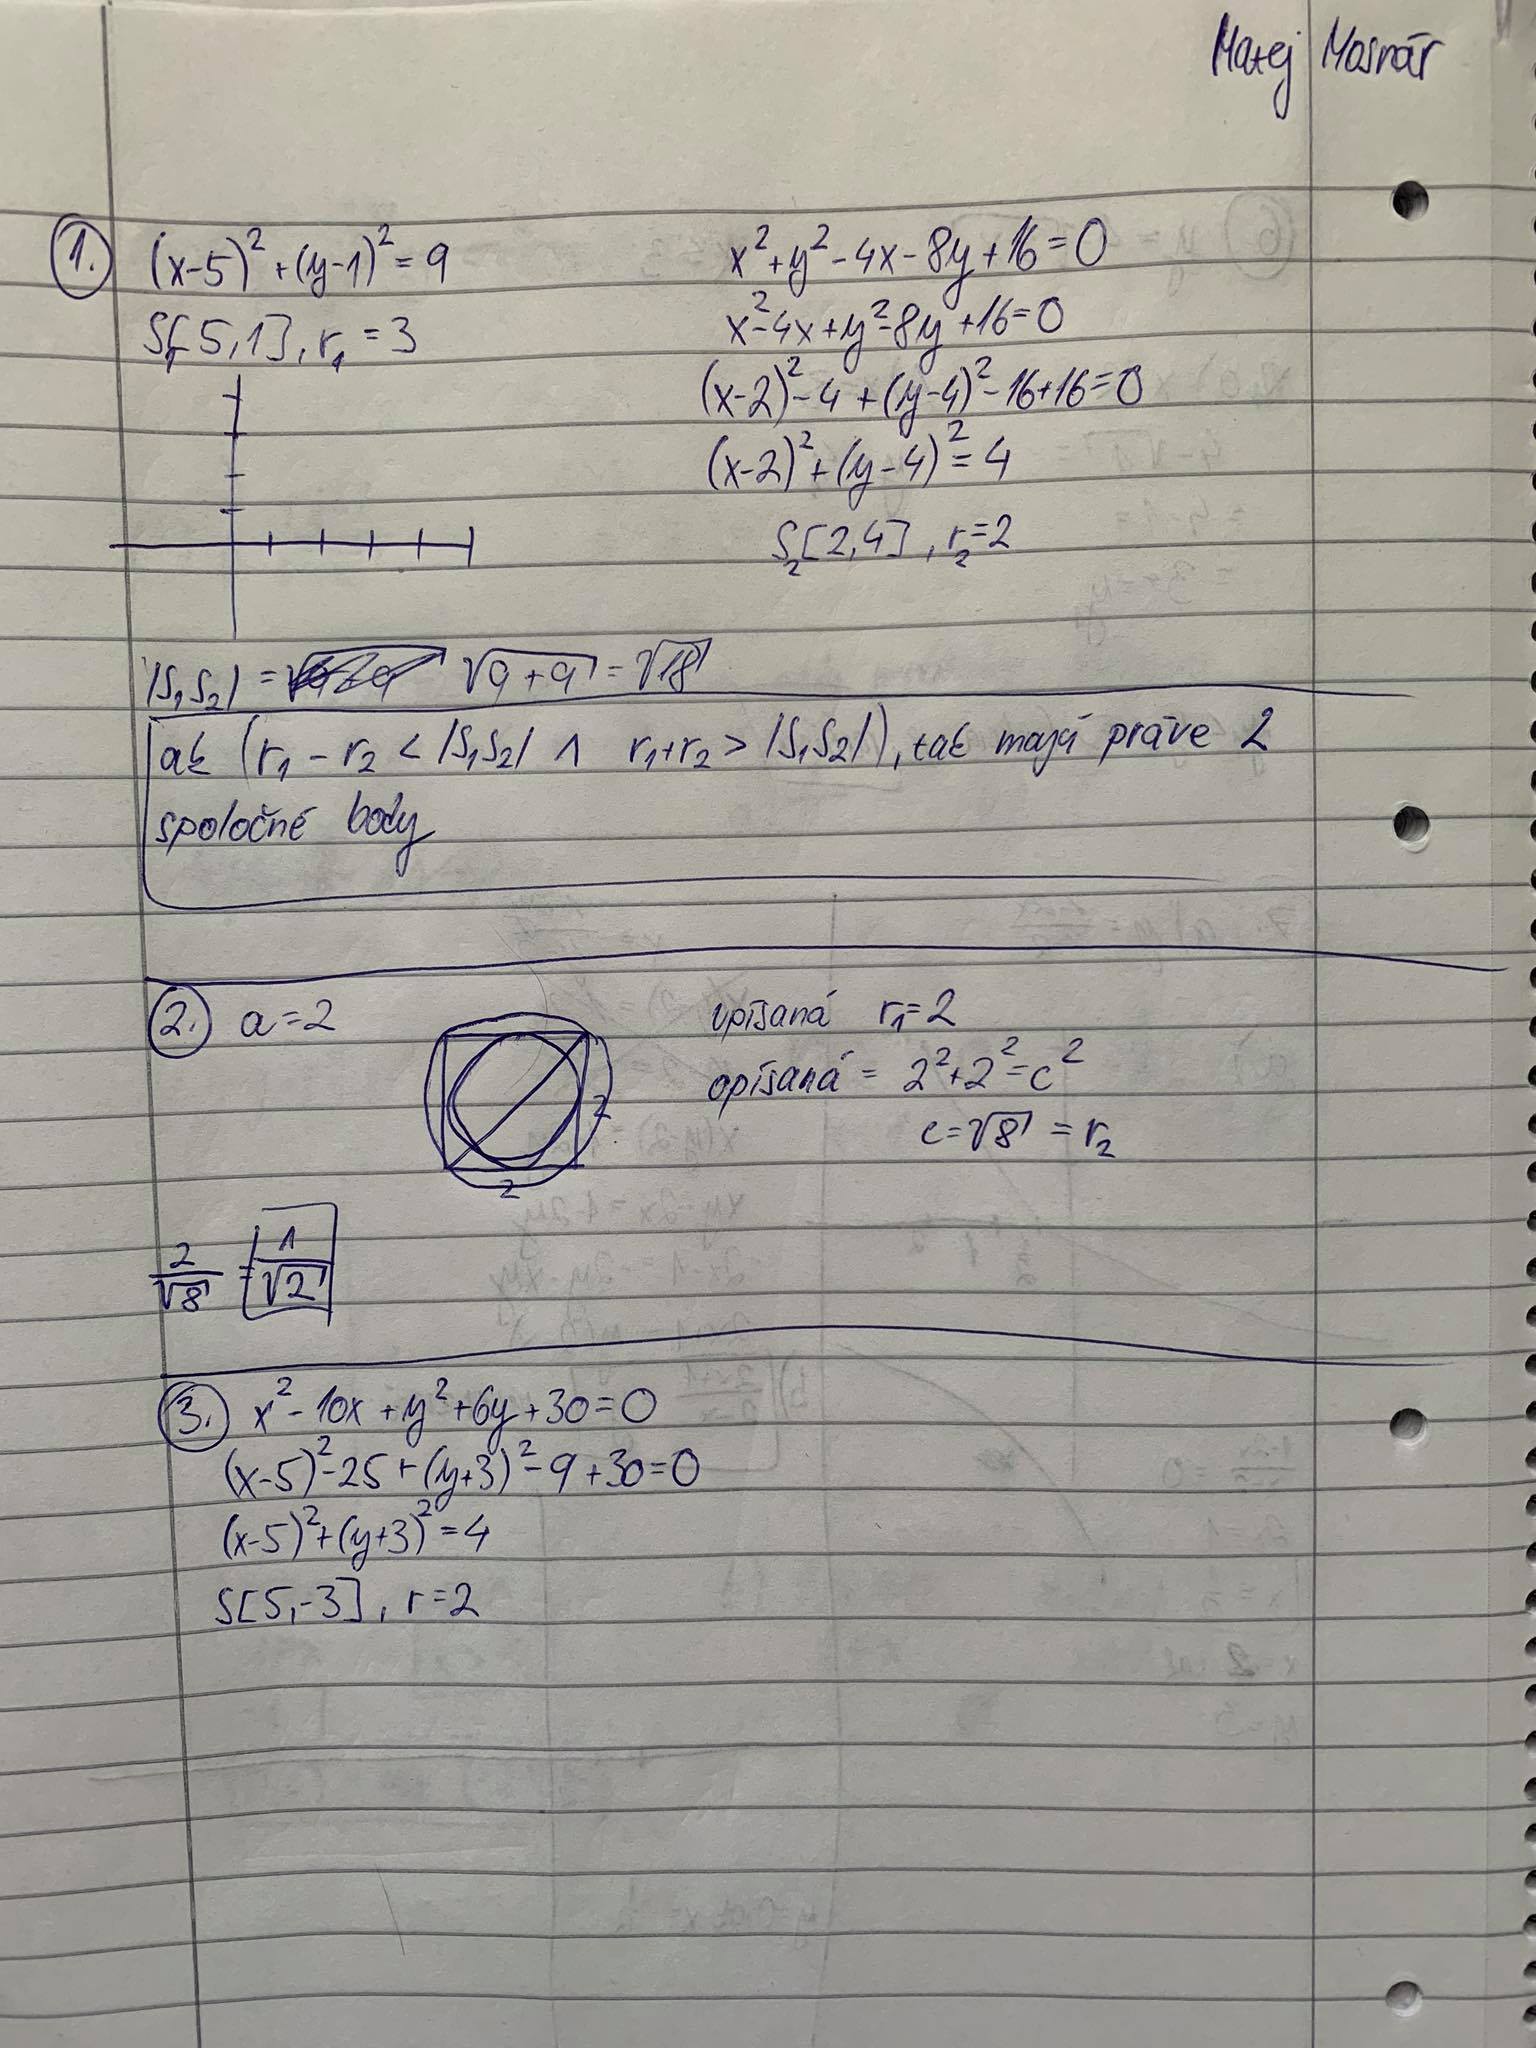 Matej Mosnár
1. (x-5)² + (y-1)² = 9
S₁[5,1], r₁ = 3
x² + y² - 4x - 8y + 16 = 0
x² - 4x + y² - 8y + 16 = 0
(x-2)² - 4 + (y-4)² - 16 + 16 = 0
(x-2)² + (y-4)² = 4
S₂[2,4], r₂ = 2
|S₁S₂| = √9+9 = √18
ak (r₁ - r₂ < |S₁S₂| ∧ r₁+r₂ > |S₁S₂|), tak majú práve 2
spoločné body
2. a = 2
2
2
vpísaná r₁ = 2
opísaná = 2² + 2² = c²
c = √8 = r₂
2/√8 = 1/√2
3. x² - 10x + y² + 6y + 30 = 0
(x-5)² - 25 + (y+3)² - 9 + 30 = 0
(x-5)² + (y+3)² = 4
S[5,-3], r = 2